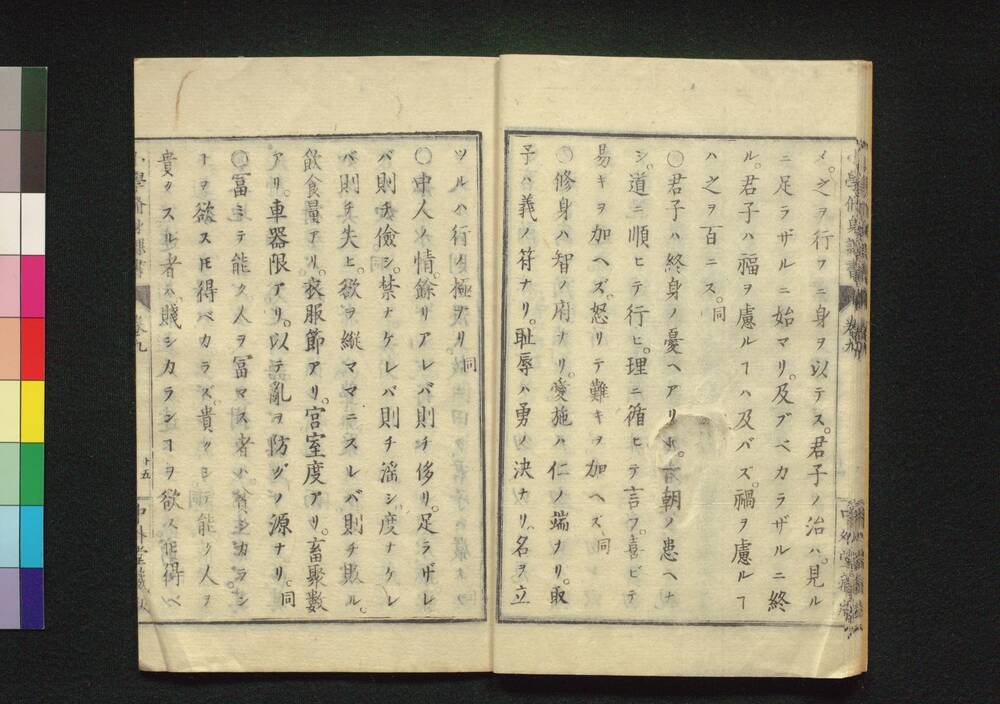 メ。之ヲ行フニ身ヲ以テス。君子ノ治ハ。見ル
ニ足ラザルニ始マリ。及ブベカラザルニ終
ル。君子ハ福ヲ慮ルヿハ及バズ。禍ヲ慮ルヿ
ハ之ヲ百ニス。同
〇君子ハ終身ノ憂ヘアリ 朝ノ患ヘナ
シ。道ニ順ヒテ行ヒ。理ニ循ヒテ言フ。喜ビテ
易キヲ加ヘズ。怒リテ難キヲ加ヘズ。同
〇修身ハ智ノ府ナリ。愛施ハ仁ノ端ナリ。取
子ハ義ノ符ナリ。耻辱ハ勇ノ決ナリ。名ヲ立
ツルハ行ノ極ナリ。同
〇中人ノ情。餘リアレバ則チ侈リ。足ラザレ
バ則チ儉シ。禁ナケレバ則チ淫シ。度ナケレ
バ則チ失ヒ。欲ヲ縱ママニスレバ則チ敗ル。
飲食量アリ。衣服節アリ。宮室度アリ。畜聚數
アリ。車器限アリ。以テ亂ヲ防グノ源ナリ。同
〇冨ミテ能ク人ヲ冨マス者ハ。貧シカラン
トヲ欲ストモ得ベカラズ。貴クシ能ク人ヲ
貴クスル者ハ。賤シカランコヲ欲ストモ得ベ
小學修身課書 卷九 十五 中外堂藏版